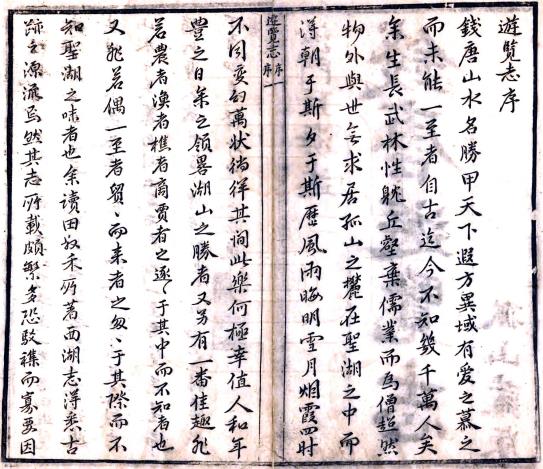 遊覽志序
錢唐山水名勝甲天下遐方異域有愛之慕之
而未能一至者自古迄今不知幾千萬人矣
余生長武林性躭丘壑棄儒業而爲僧超然
物外與世無求居孤山之麓在聖湖之中而
淂朝于斯夕于斯歷風雨晦明雪月烟霞四时
遊覽志 序 序 一
不同变幻萬状徜徉其间此樂何極幸值人和年
豊之日余之領畧湖山之勝者又另有一番佳趣非
若農者漁者樵者商賈者之逐〻于其中而不知者也
又非若偶一至者貿〻而来者之匆〻于其際而不
知聖湖之味者也余讀田奴禾所著西湖志淂悉古
跡之源流焉然其志所載頗繁多恐駁襍而寡要因